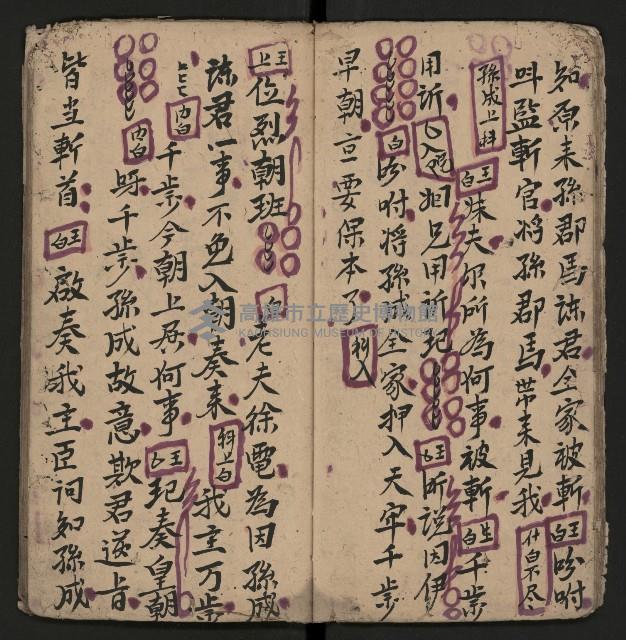 知原来孫郡馬誅君全家被斬 王白 吩咐
叫監斬官將孫郡馬帶来見我 什白不尽
孫成上科 王白 妹夫尔所為何事被斬 生白 千歲
用訴 入范 姐兄用所記 王 听說因伊
白 吩咐將孫成全家押入天牢千歲
早朝亘要保本了 科入
王上 位烈朝班 白 老夫徐電為因孫成
誅君一事不免入朝奏来 科上白 我主万歲
內白 千歲今朝上居何事 王 記奏皇朝
內白 呀千歲孫成故意欺君逆旨
皆当斬首 王白 啟奏我主臣詞知孫成
高雄市立歷史博物館
KAOHSIUNG MUSEUM OF HISTORY